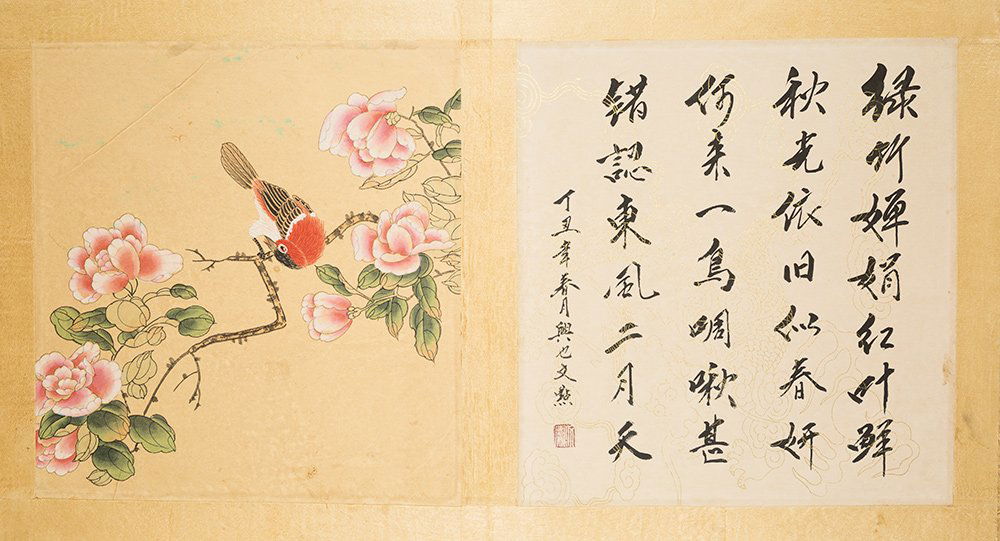 綠竹嬋娟紅叶鮮
秋光依旧似春妍
何来一鳥啁啾甚
錯認東風二月天
丁丑年春月與也文點